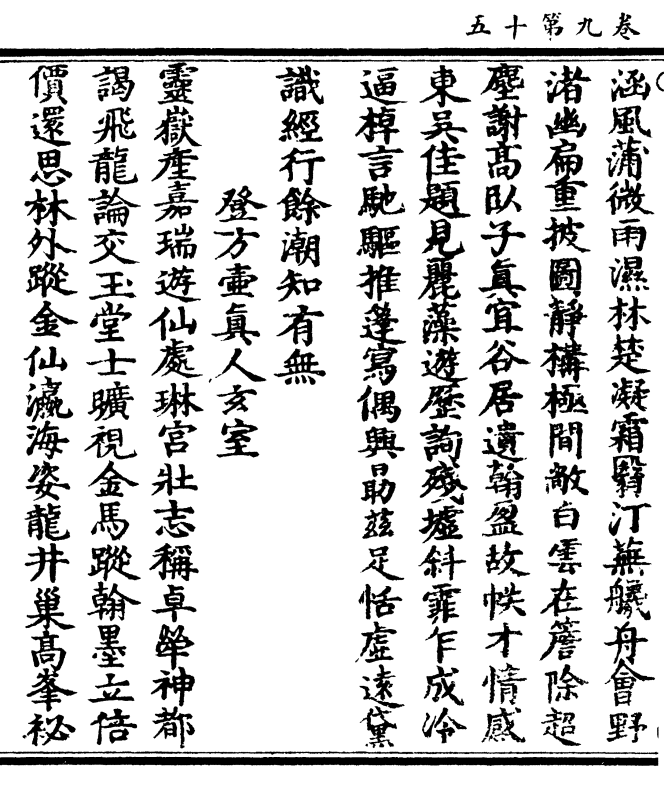 卷九第十五
涵風蒲微雨濕林楚凝霜翳汀蕪艤舟會野
渚幽扁重披圖靜構極閒敞白雲在簷除超
塵謝高臥子真宜谷居遺翰盈故帙才情感
東吳佳題見麗藻遊歷詢殘墟斜霏乍成冷
逼棹言馳驅推蓬寫偶興勗茲足恬虛遠黛
識經行餘潮知有無
登方壷真人玄室
靈嶽産嘉瑞遊仙處琳宮壯志稱卓犖神都
謁飛龍論交玉堂士曠視金馬蹤翰墨立倍
價還思林外蹤金仙瀛海姿龍井巢高峯祕